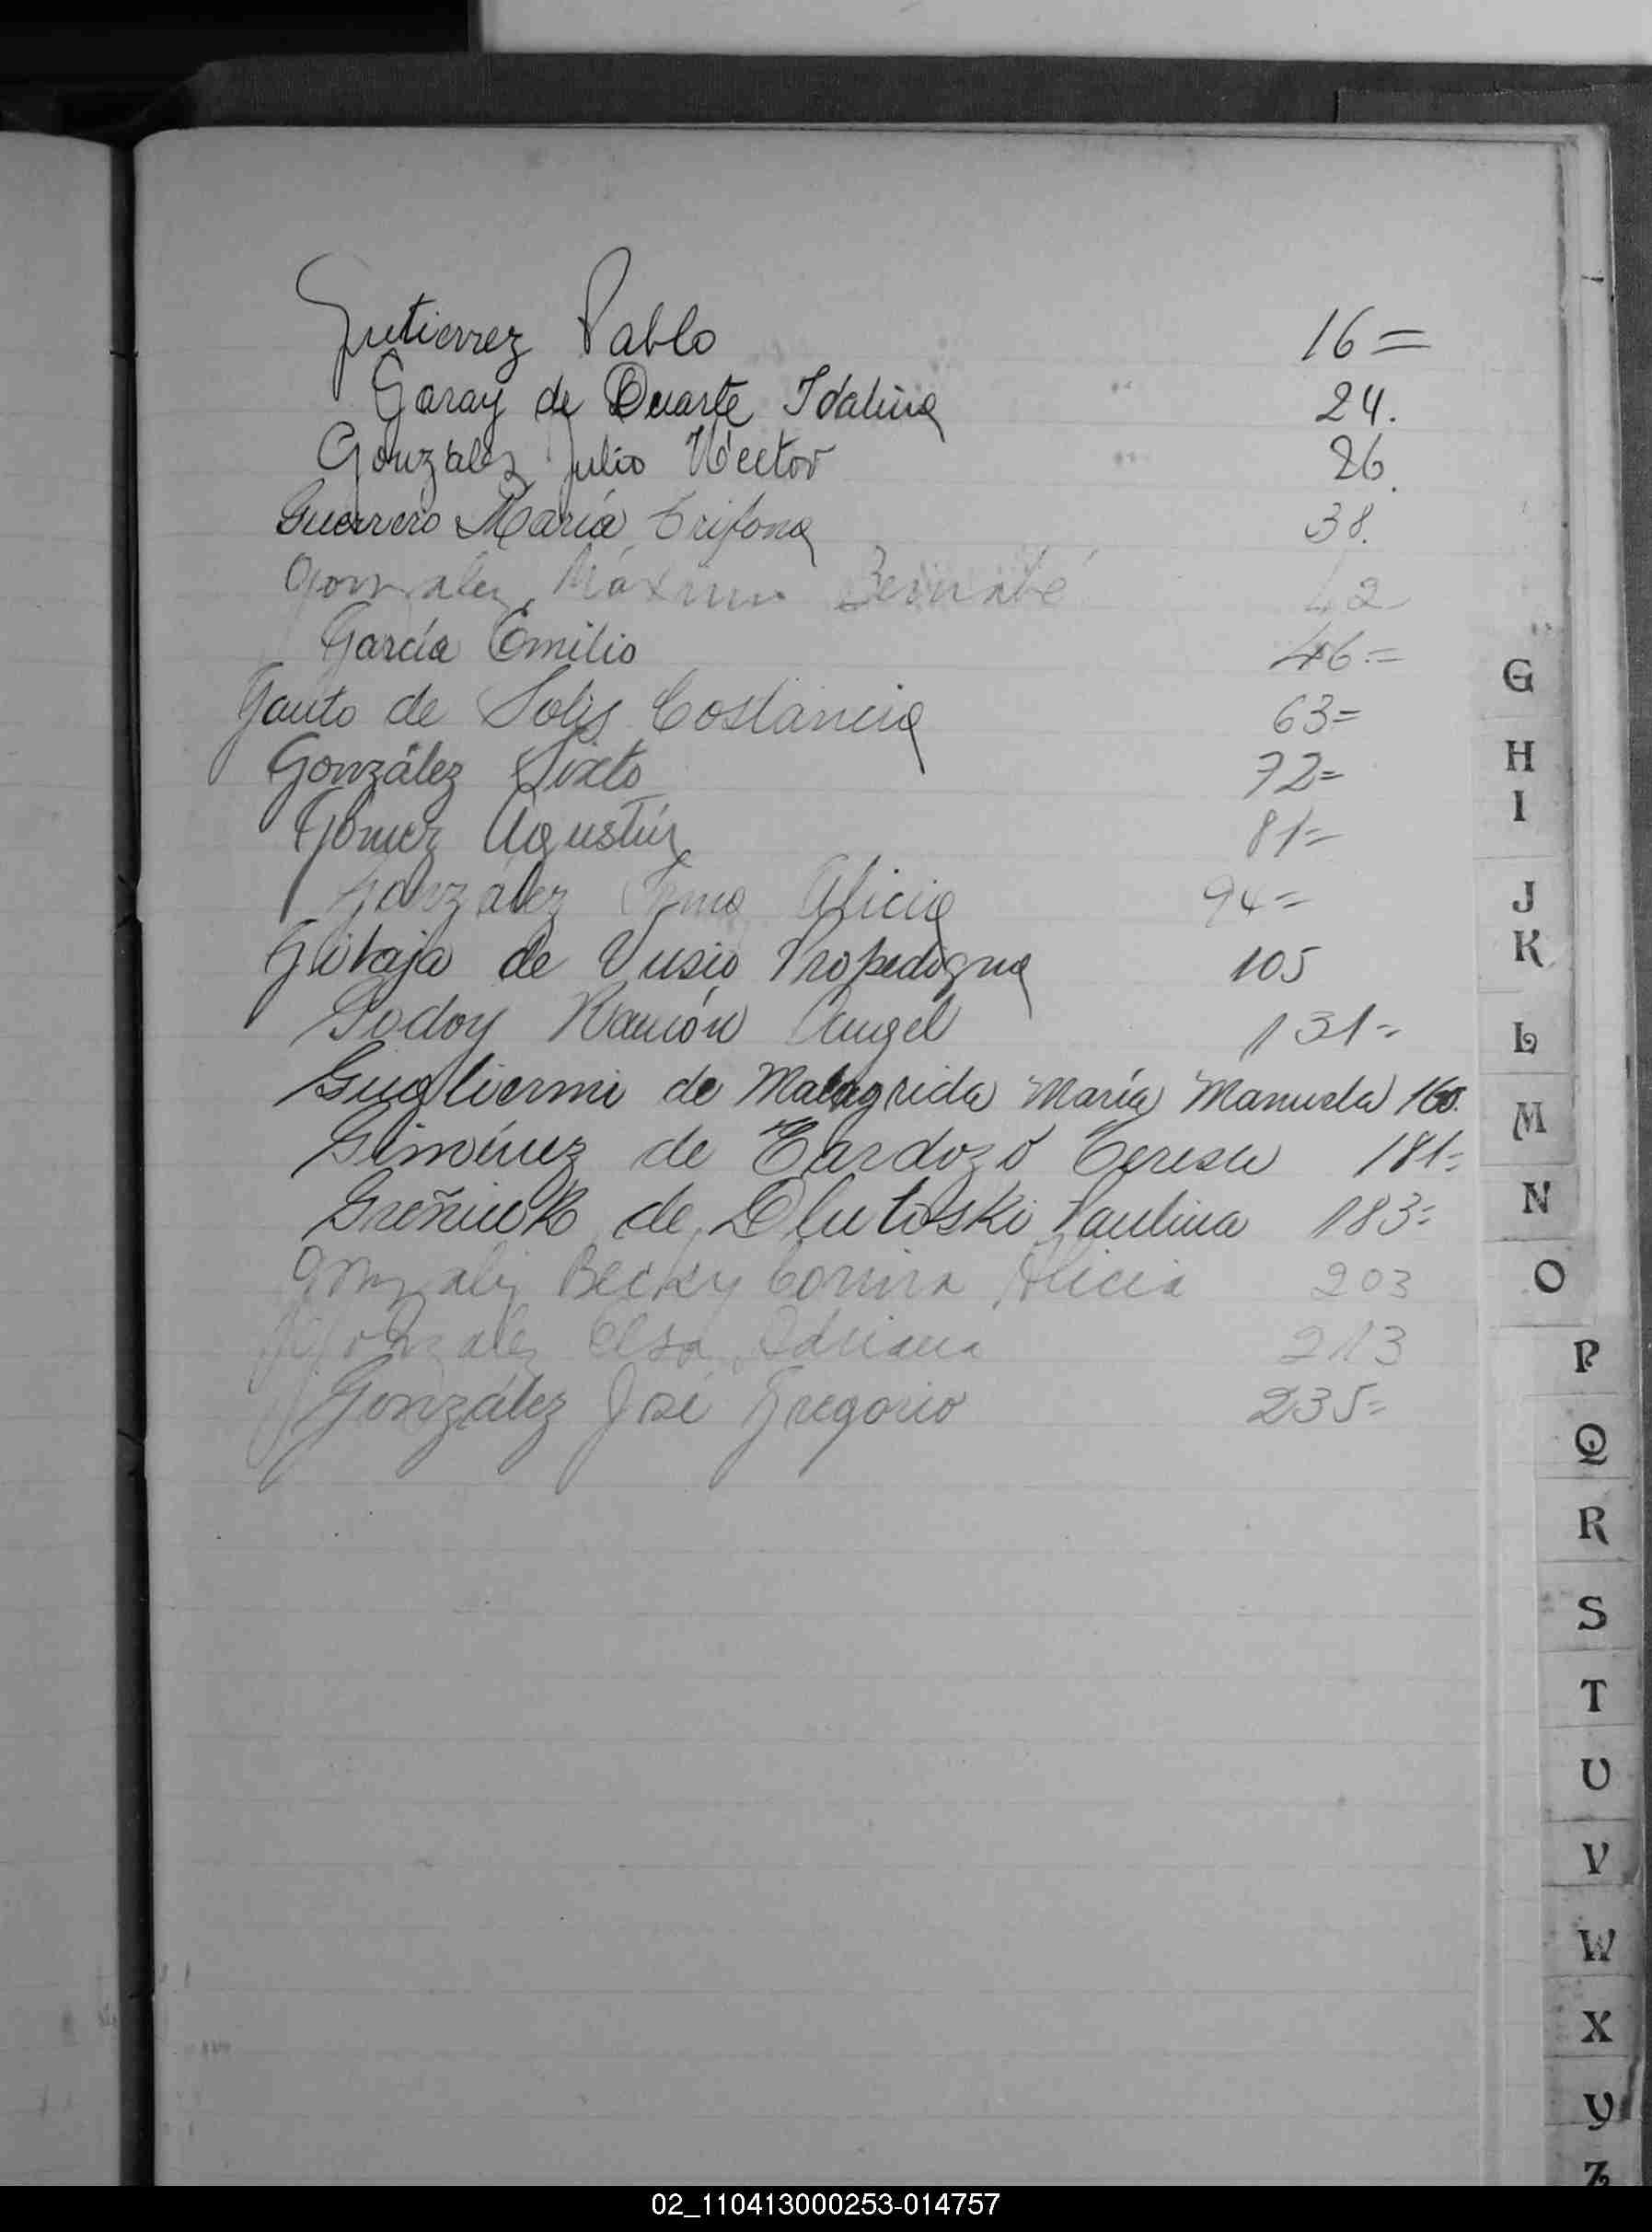 Gutierrez Pablo 16=
Garay de Duarte Idalina 24.
Gonzalez Julio Héctor 26.
Guerrero María Trifona 38.
Gonzalez Máximo Bernabé 42
García Emilio 46.=
Gauto de Solis Costancia 63=
González Sixto 72=
Gómez Agustín 81=
González Irma Alicia 94=
Gribaja de Vusio 105
Godoy Ramón Angel 131=
Gugliermi de Malagrida María Manuela 160.
Giménez de Cardozo Teresa 181=
Greñiuk de Dlutoski Paulina 183=
Gonzalez Becky Corina Alicia 203
Gonzalez Elsa Adriana 213
González José Gregorio 235=
G
H
I
J
K
L
M
N
O
P
Q
R
S
T
U
V
W
X
Y
Z
02_110413000253-014757